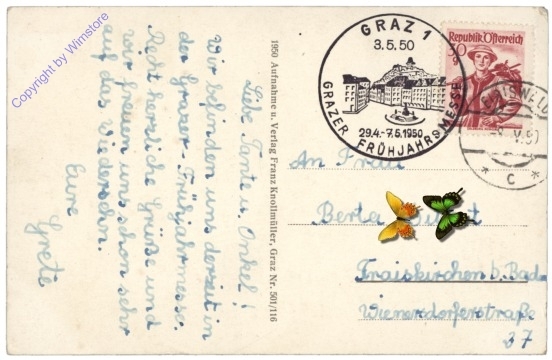 Copyright by Wimstore
Liebe Tante u. Onkel!
Wir befinden uns derzeit in
der Grazer-Frühjahrmesse.
Recht herzliche Grüße und
wir freuen uns schon sehr
auf das Wiedersehn.
Eure
Grete
1950 Aufnahme u. Verlag Franz Knollmüller, Graz Nr. 501/116
GRAZ 1
3.5.50
29.4.-7.5.1950
GRAZER FRÜHJAHRSMESSE
Republik Österreich
30 g
* C *
An Frau
Berta
Traiskirchen b. Baden
Wienersdorferstraße
37